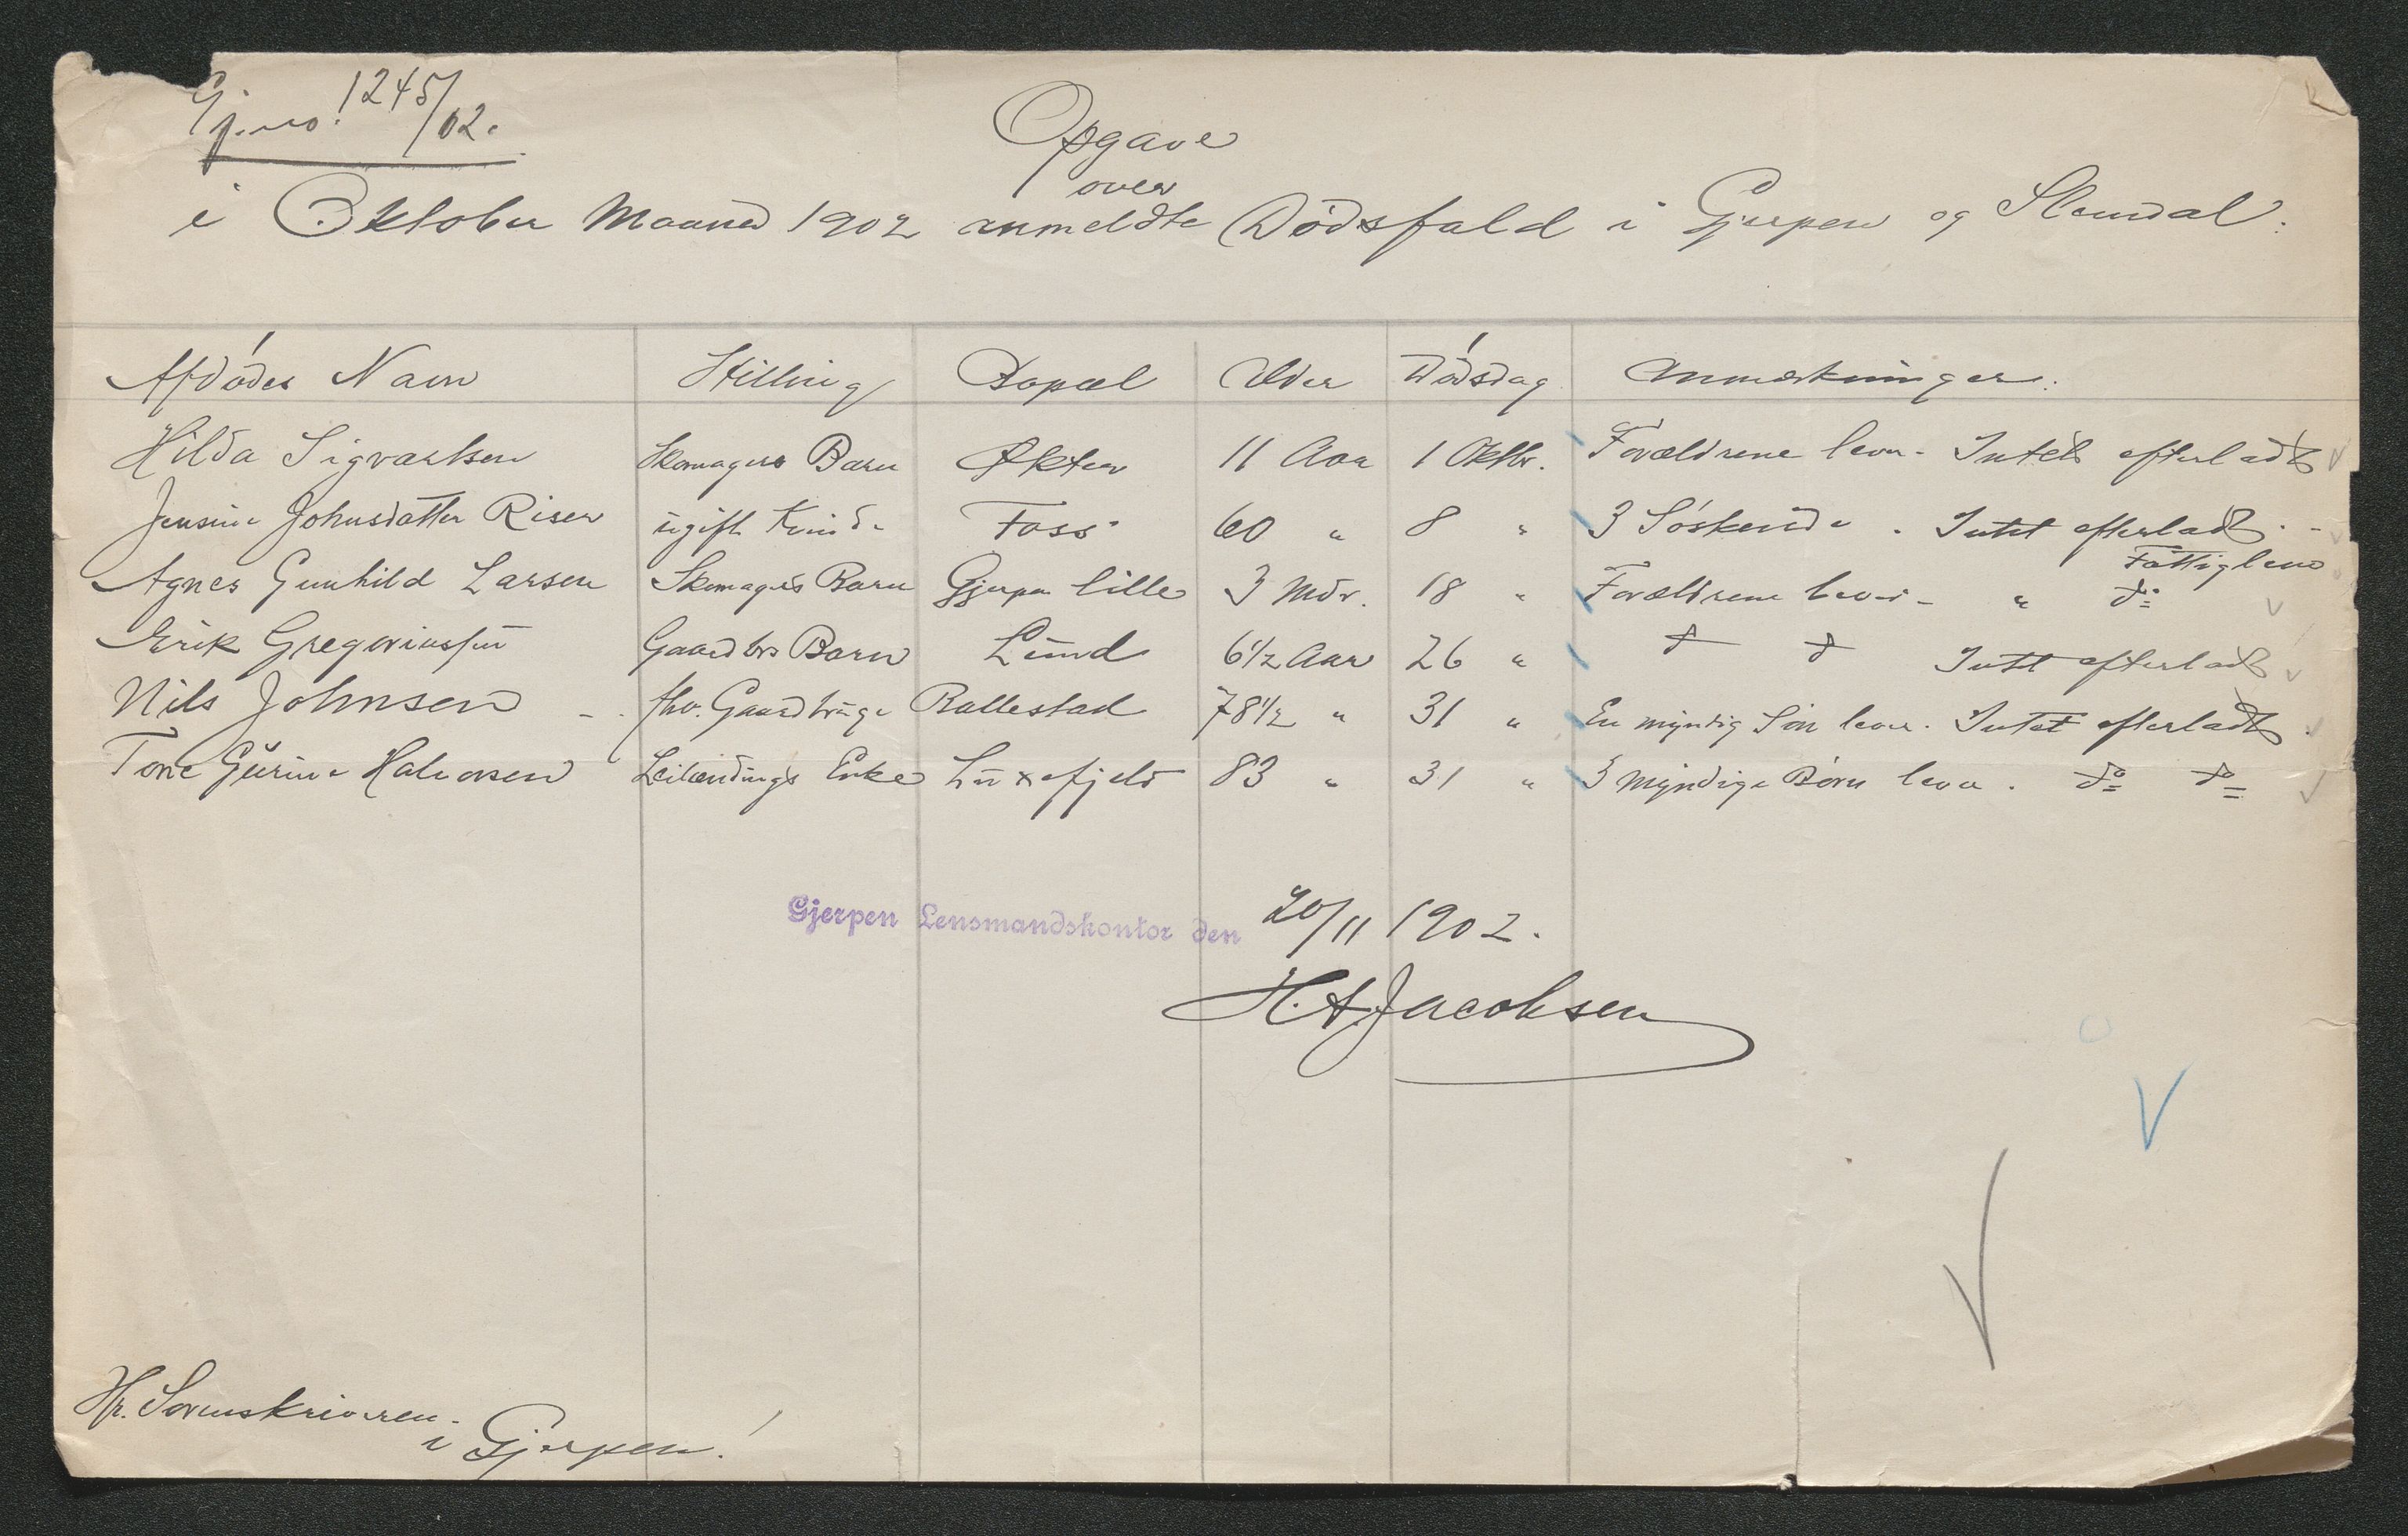 Gj.no. 1245/02.
Opgave
over
i Oktober Maaned 1902 anmeldte Dødsfald i Gjerpen og Slemdal.
Afdødes Navn Stilling Bopæl Alder Dødsdag Anmærkninger.
Hilda Sigvartsen Skomagers Barn Økter 11 Aar 1 Oktbr. Forældrene lever. Intet efterladt
Jensine Johnsdatter Riser ugift Kvinde Foss 60 " 8 " 3 Søskende. Intet efterladt. -
Fattiglem
Agnes Gunhild Larsen Skomagers Barn Gjerpen lille 3 Mdr. 18 " Forældrene lever - " do
Erik Gregoriussen Gaardbrs Barn Lund 6½ Aar 26 " do do Intet efterladt
Nils Johnsen - . fhv. Gaardbruger Ballestad 78½ " 31 " En myndig Søn lever. Intet efterladt.
Tone Gurine Halvorsen Leilændings Enke Luxefjeld 83 " 31 " 3 myndige Børn lever. do do
Gjerpen Lensmandskontor den 20/11 1902.
H. A. Jacobsen
Hr. Sorenskriveren
i Gjerpen!